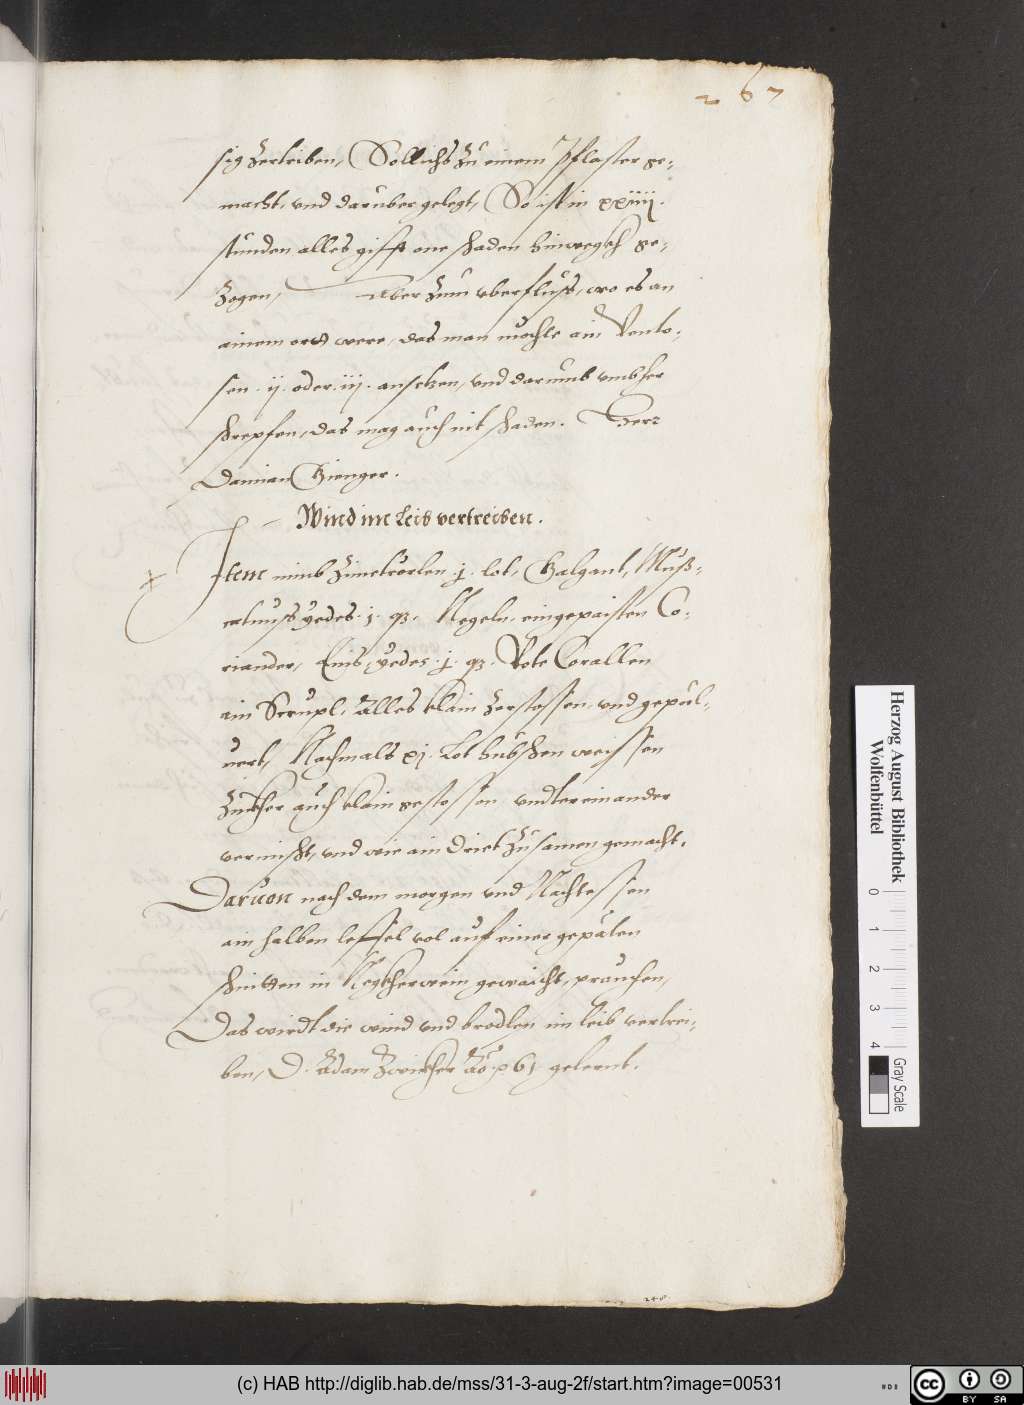 267
sig Zertriben, Sollichs Zu einem Pflaster ge-
macht, vnd daruber gelegt, So ist in xxiiij.
stunden alles gifft one schaden hinwegkh ge-
Zogen, Aber Zum vberfluss, wo es an
ainem ortt were, das man möchte ain Vento-
sen .ij. oder .iij. ansetzen, vnd darumb vmbher
schrepfen, das mag auch nit schaden. Herr
Damian Gienger.
Wind im leib vertreiben.
Item nimb Zimetrörlen .j. lot, Galgant, Muß-
catnuss yedes .j. q3. Negeln, eingepaisten Co-
riander, Enis, yedes .j. q3. Rote Corallen
ain Scrupl, Alles klain Zerstossen, vnd gepul-
uert, Nachmals xj. Lot hübschen weissen
Zukher auch klain gestossen vndtereinander
vermischt, vnd wie ain Triet Zusamen gemacht.
Daruon nach dem morgen vnd Nachtessen
ain halben leffel vol auf einer gepäten
schnitten in Negkherwein gewaicht, prauchen,
Das wirdt die wind vnd brodlen im leib vertrei-
ben, D. Adam Zwickher Ao. 61 gelernt.
248
Herzog August Bibliothek
Wolfenbüttel
0 1 2 3 4
Gray Scale
(c) HAB http://diglib.hab.de/mss/31-3-aug-2f/start.htm?image=00531
HAB
cc BY SA